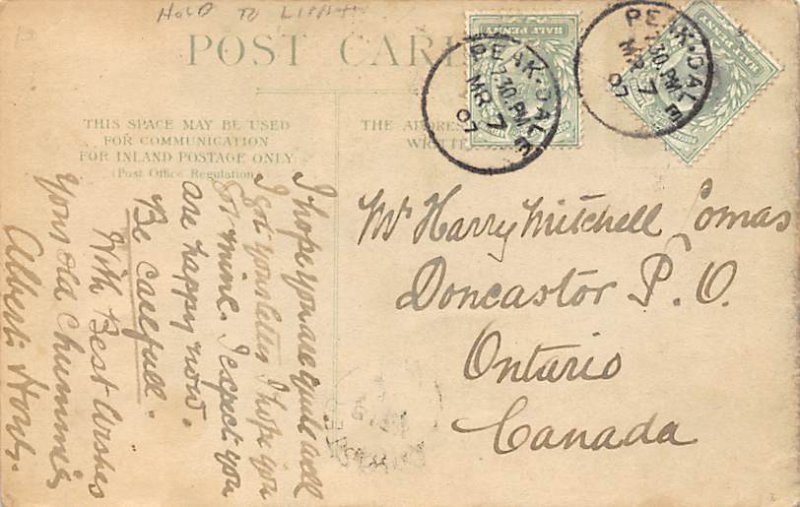 HOLD TO LIGHT
POST CARD
THIS SPACE MAY BE USED
FOR COMMUNICATION
FOR INLAND POSTAGE ONLY
(Post Office Regulation)
THE ADDRESS
WRIT
HALF PENNY
PEAK-DALE
7.30.PM
MR 7
07
HALF PENNY
PEAK-DALE
7.30.PM
MR 7
07
I hope you are quite well
I got your letter I hope you
got mine. I expect you
are happy now.
Be carefull.
With Best Wishes
Yours old chummie
Albert
Mr Harry Mitchell Lomas
Doncastor P.O.
Ontario
Canada